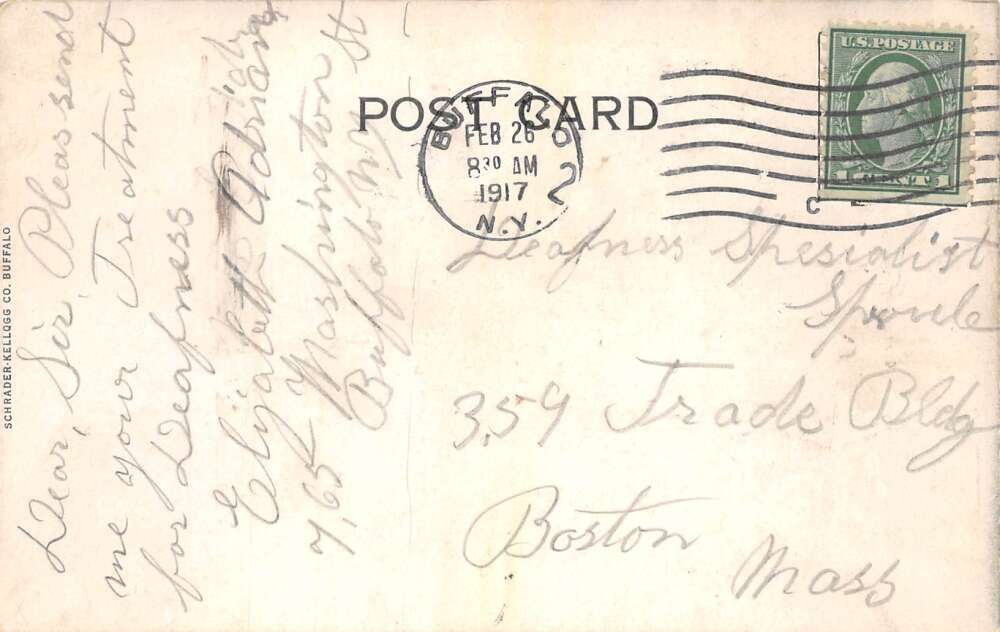 POST CARD
U.S. POSTAGE
1 CENT 1
BUFFALO
FEB 26
8 30 AM
1917
N.Y.
2
Deafness Spesialist
Sproule
359 Trade Bldg
Boston
Mass
Dear, Sir, Pleas send
me your Treatment
for Deafness
Elizabett
765 Washington St
Buffalo N.Y
SCHRADER-KELLOGG CO. BUFFALO